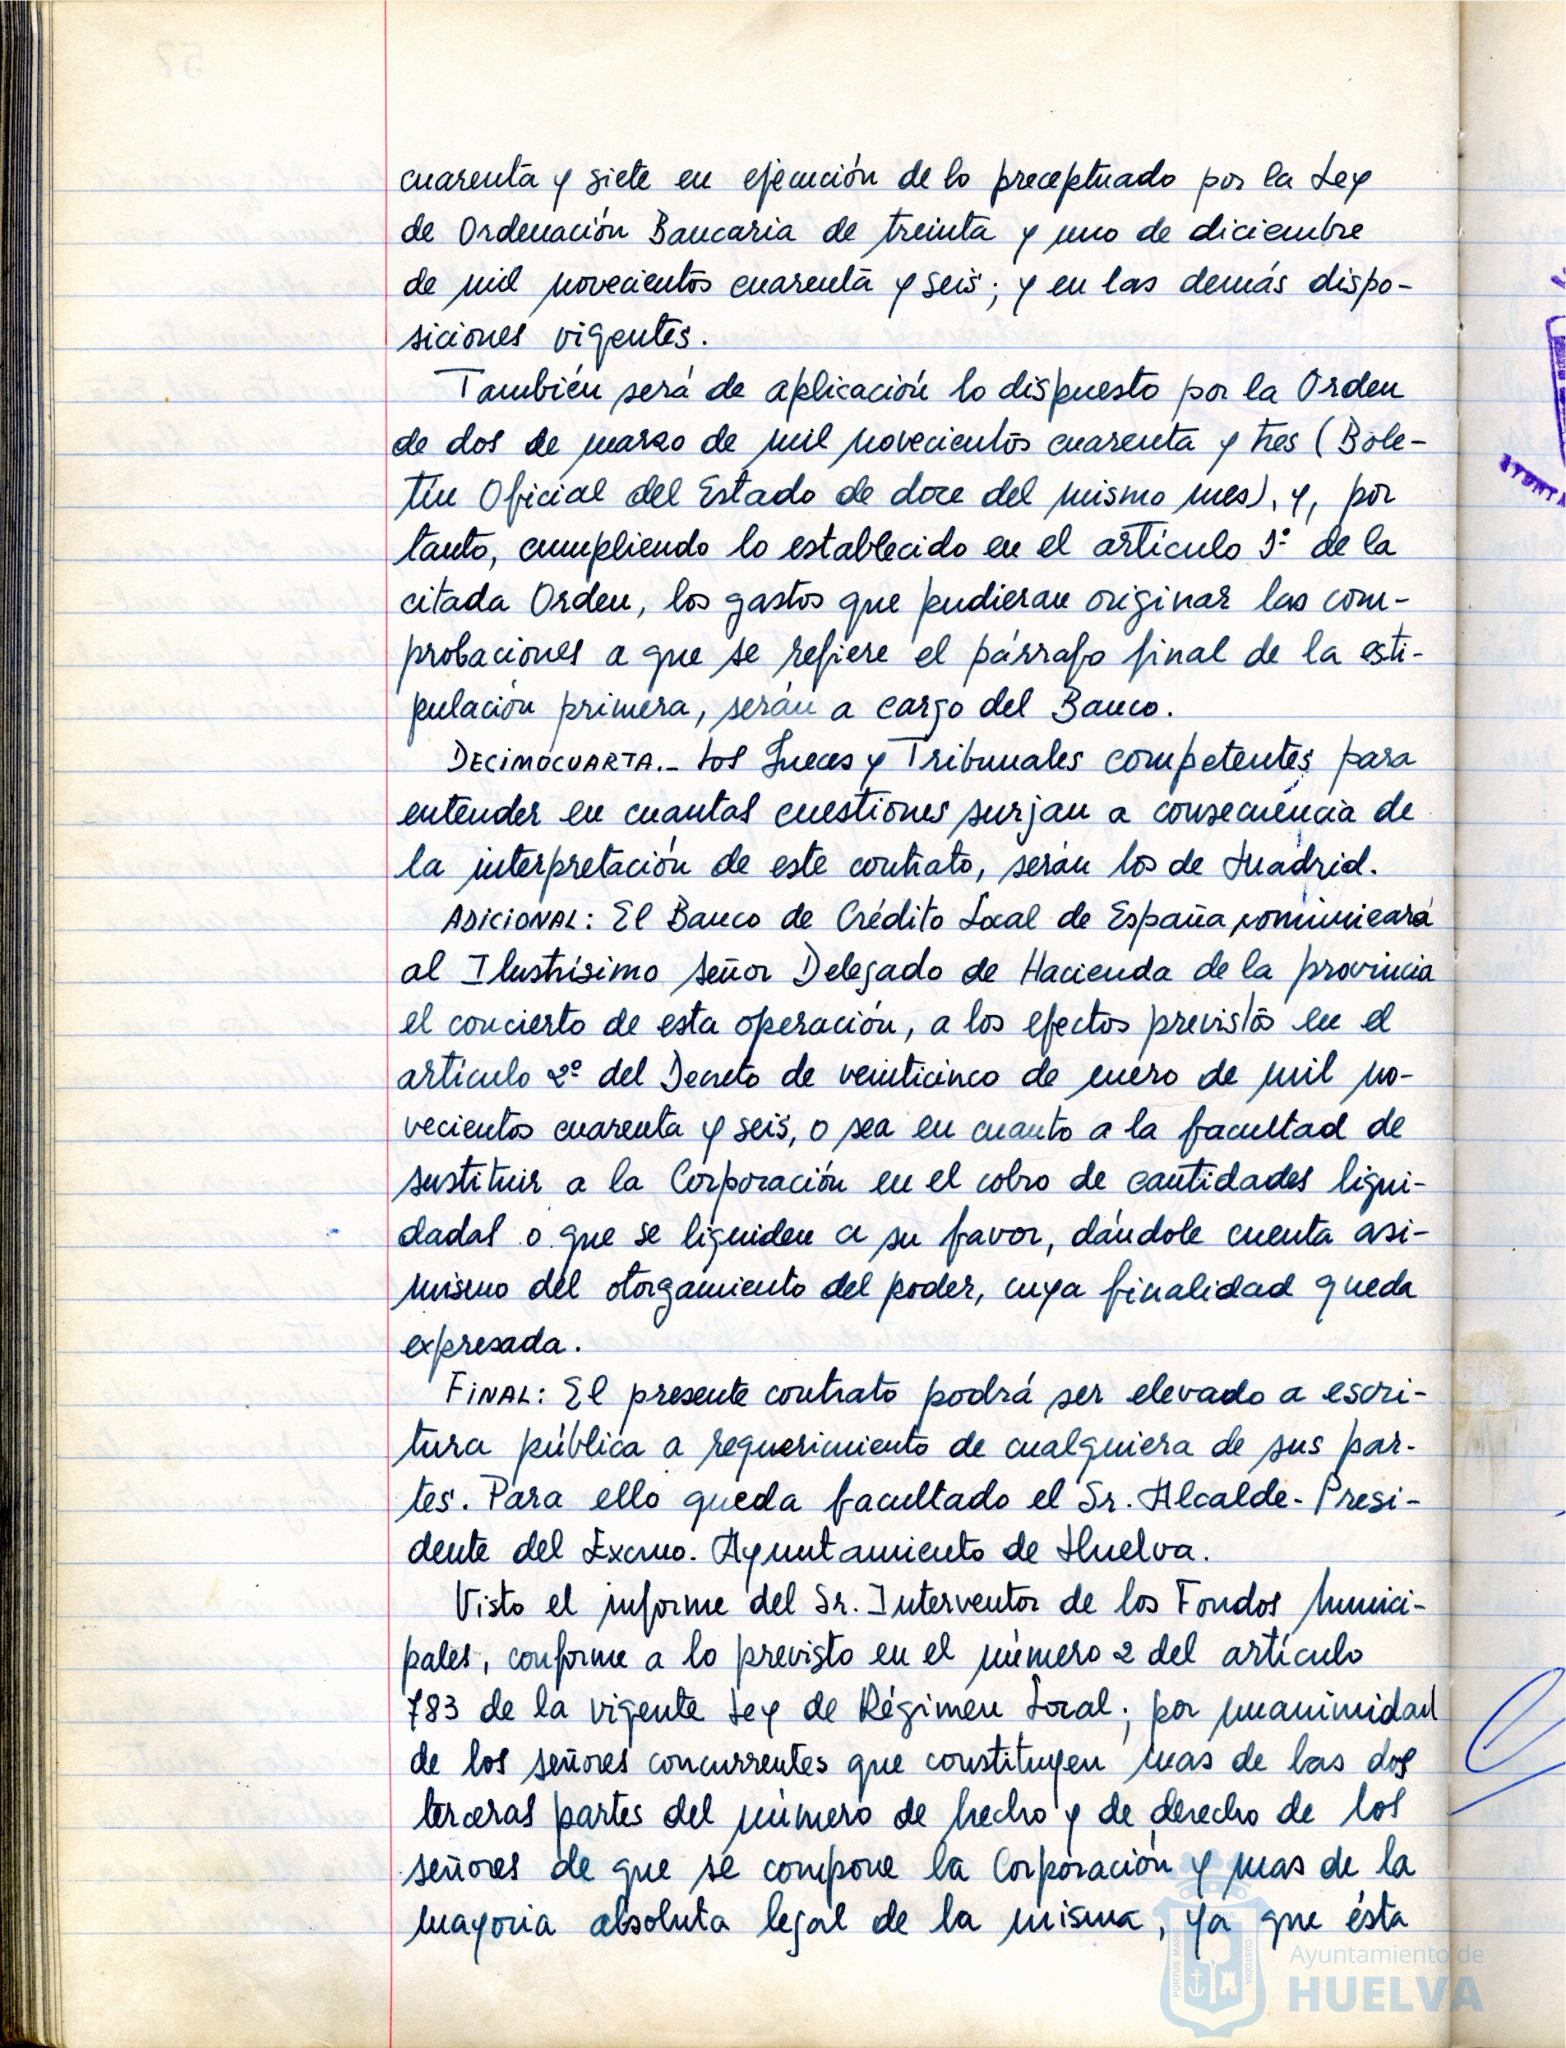 cuarenta y siete en ejecución de lo preceptuado por la Ley
de Ordenación Bancaria de treinta y uno de diciembre
de mil novecientos cuarenta y seis; y en las demás dispo-
siciones vigentes.
También será de aplicación lo dispuesto por la Orden
de dos de marzo de mil novecientos cuarenta y tres (Bole-
tín Oficial del Estado de doce del mismo mes), y, por
tanto, cumpliendo lo establecido en el artículo 3º de la
citada Orden, los gastos que pudieran originar las com-
probaciones a que se refiere el párrafo final de la esti-
pulación primera, serán a cargo del Banco.
DECIMOCUARTA.- Los Jueces y Tribunales competentes para
entender en cuantas cuestiones surjan a consecuencia de
la interpretación de este contrato, serán los de Madrid.
ADICIONAL: El Banco de Crédito Local de España comunicará
al Ilustrísimo señor Delegado de Hacienda de la provincia
el concierto de esta operación, a los efectos previstos en el
artículo 2º del Decreto de veinticinco de enero de mil no-
vecientos cuarenta y seis, o sea en cuanto a la facultad de
sustituir a la Corporación en el cobro de cantidades liqui-
dadas o que se liquiden a su favor, dándole cuenta asi-
mismo del otorgamiento del poder, cuya finalidad queda
expresada.
FINAL: El presente contrato podrá ser elevado a escri-
tura pública a requerimiento de cualquiera de sus par-
tes. Para ello queda facultado el Sr. Alcalde-Presi-
dente del Excmo. Ayuntamiento de Huelva.
Visto el informe del Sr. Interventor de los Fondos Munici-
pales, conforme a lo previsto en el número 2 del artículo
783 de la vigente Ley de Régimen Local; por unanimidad
de los señores concurrentes que constituyen mas de las dos
terceras partes del número de hecho y de derecho de los
señores de que se compone la Corporación y mas de la
mayoria absoluta legal de la misma, ya que ésta
PORTUS MARIS CUSTODIA
Ayuntamiento de
HUELVA